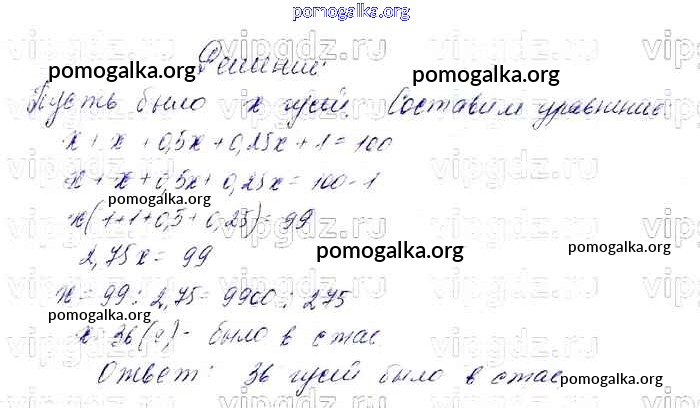 pomogalka.org
Решение:
pomogalka.org pomogalka.org
Пусть было х гусей. Составим уравнение:
х + х + 0,5х + 0,25х + 1 = 100
х + х + 0,5х + 0,25х = 100 - 1
pomogalka.org
х(1+1+0,5+0,25) = 99
2,75х = 99
pomogalka.org pomogalka.org
х = 99 : 2,75 = 9900 : 275
pomogalka.org
х = 36 (г) - было в стае
Ответ: 36 гусей было в стае
pomogalka.org
vipgdz.ru vipgdz.ru